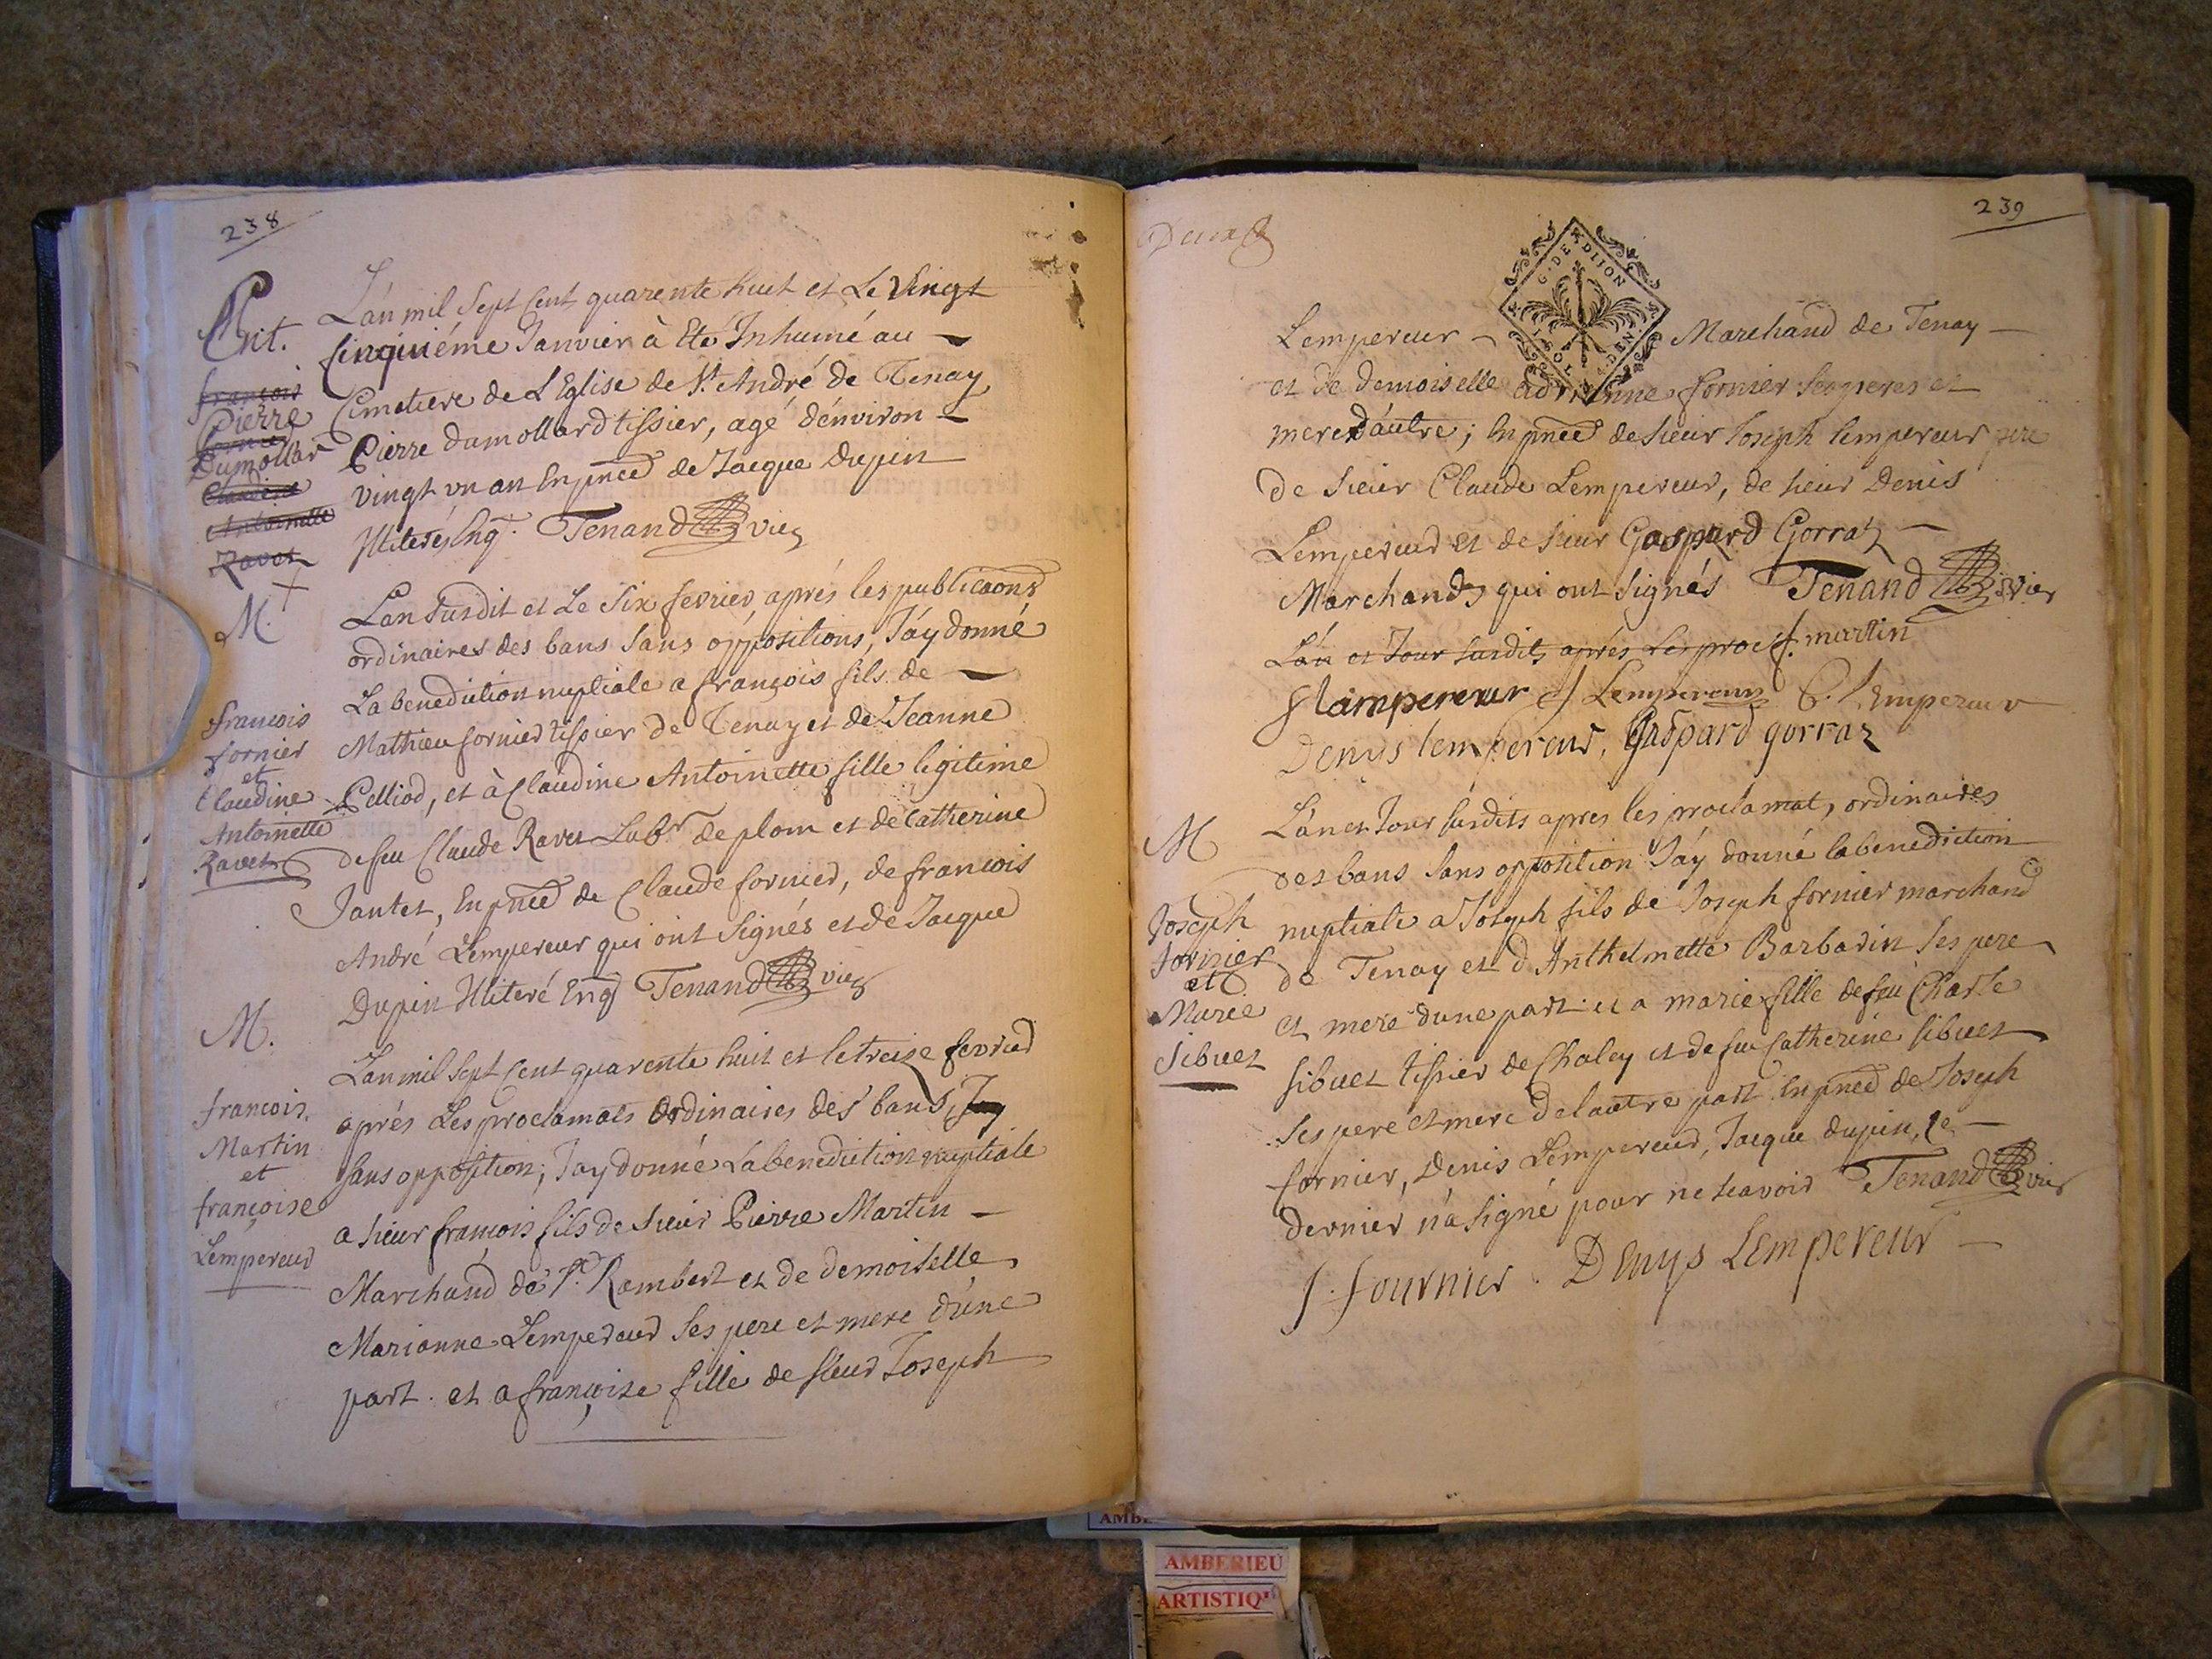 238
Ent.
françois
Pierre
fornier
Dumollar
Claudine
Antoinette
Ravet
L'an mil Sept Cent quarente huit et Le Vingt
sinquiéme Janvier à Eté Inhumé au
Cimetiere de L'Eglise de St. André de Tenay
Pierre dumollard tissier, agé d'environ
vingt un an En pnce de Jacque Dupin
Illiteré Enq. Tenand vic
M.
françois
fornier
et
Claudine
Antoinette
Ravet
L'an Susdit et Le Six fevrier aprés les publicaons
ordinaires des bans Sans oppositions, J'ay donné
La benediction nuptiale a françois fils de
Mathieu fornier tissier de Tenay et de Jeanne
Pelliod, et à Claudine Antoinette fille legitime
de feu Claude Ravet Labr de plom et de Catherine
Jantet, En pnce de Claude fornier, de françois
André Lempereur qui ont Signés et de Jacque
Dupin Illiteré Enq Tenand vic
M.
françois
Martin
et
françoise
Lempereur
L'an mil Sept Cent quarente huit et le treize fevrier
aprés Les proclamats Ordinaires des bans, Jay
sans opposition; Jay donné La benediction nuptiale
a sieur françois fils de Sieur Pierre Martin
Marchand de St. Rambert et de demoiselle
Marianne Lempereur Ses pere et mere d'une
part. et a françoise fille de sieur Joseph
239
Lempereur Marchand de Tenay
G. DE DIJON
et de demoiselle adrienne fornier Ses peres et
mere d'autre; En pnce de sieur Joseph lempereur pere
de Sieur Claude Lempereur, de sieur Denis
Lempereur et de sieur Gaspard Gorraz
Marchands qui ont Signés Tenand vic
L'an et Jour susdits aprés Les proc f. martin
J Lempereur C. Lempereur
Denys lempereur, Gaspard gorraz
M
Joseph
fornier
et
Marie
Sibuet
L'an et Jour susdits apres les proclamat, ordinaires
des bans Sans opposition J'ay donné la benediction
nuptiale a Joseph fils de Joseph fornier marchand
de Tenay et d'Anthelmette Barbarin Ses pere
et mere d'une part et a marie fille de feu Charle
Sibuet tissier de Chaley et de feu Catherine Sibuet
Ses pere et mere de l'autre part En pnce de Joseph
fornier, Denis Lempereur, Jacque dupin, Ce
dernier n'a Signé pour ne Scavoir Tenand vic
J. fournier. Denys Lempereur
AMBERIEU
ARTISTIQ